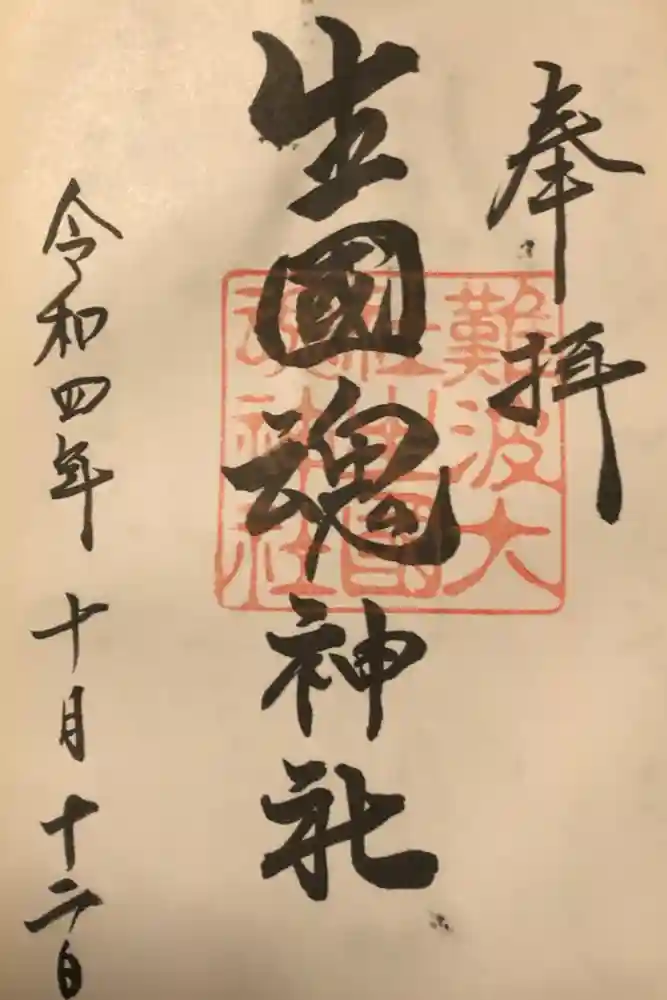 奉拝
生國魂神社
難波大
社生國
魂神社
令和四年 十月 十二日